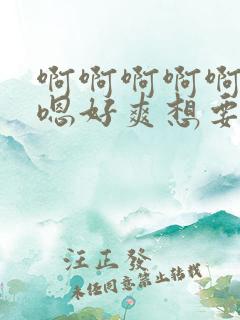 啊啊啊啊啊
嗯好爽想要
汪正發
未经同意禁止转载